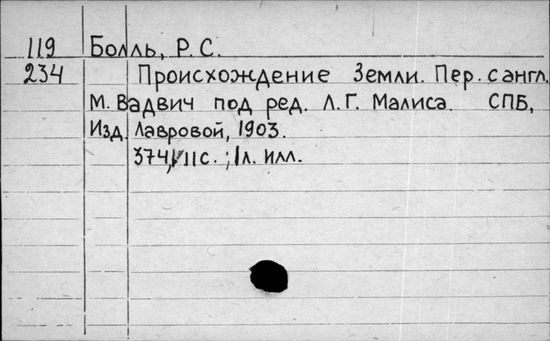 119 Болль, Р. С.
234 Происхождение Земли. Пер. с англ.
М. Вадвич под ред. Л. Г. Малиса. СПБ,
Изд. Лавровой, 1903.
374, VII с.; 1 л. илл.